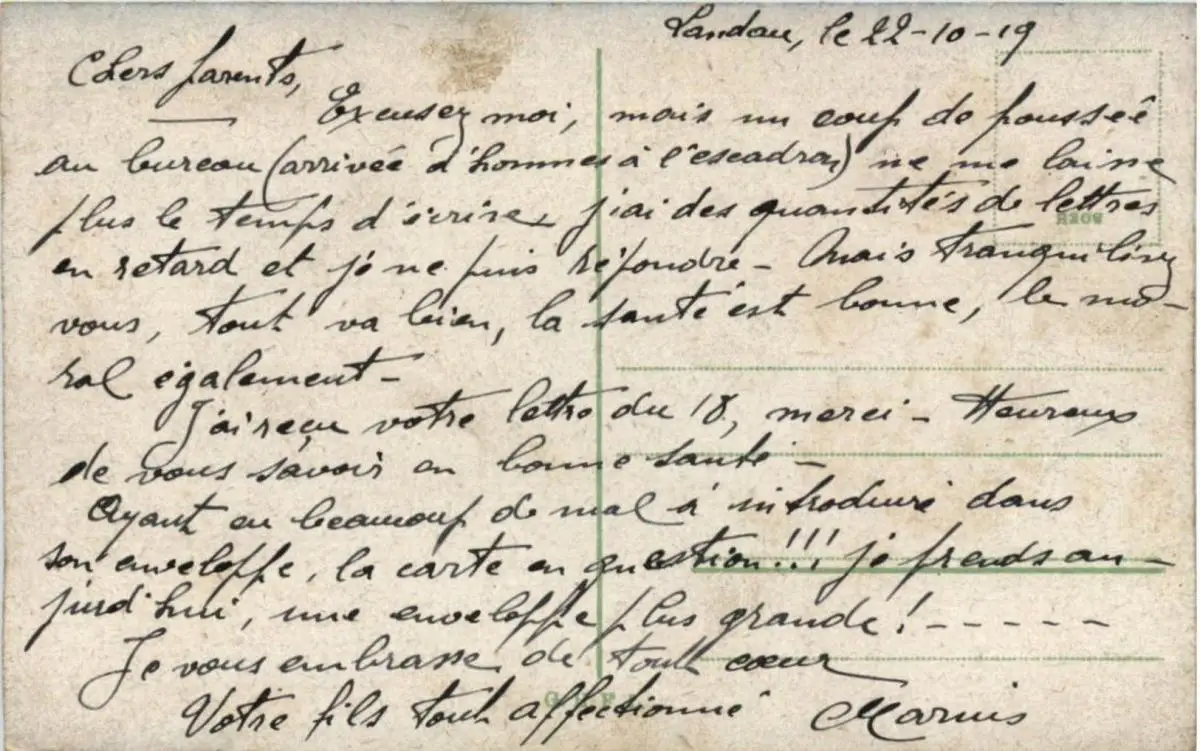 Landau, le 22-10-19
Chers parents,
Excusez moi, mais un coup de poussée
au bureau (arrivée d'hommes à l'escadron) ne me laisse
plus le temps d'écrire, j'ai des quantités de lettres
en retard et je ne puis répondre - Mais tranquilisez
vous, tout va bien, la santé est bonne, le mo-
ral également -
J'ai reçu votre lettre du 18, merci - Heureux
de vous savoir en bonne santé -
Ayant eu beaucoup de mal à introduire dans
son enveloppe, la carte en question!!! je prends au-
jurd'hui, une enveloppe plus grande! - - - - -
Je vous embrasse de tout cœur
Votre fils tout affectionné Marius